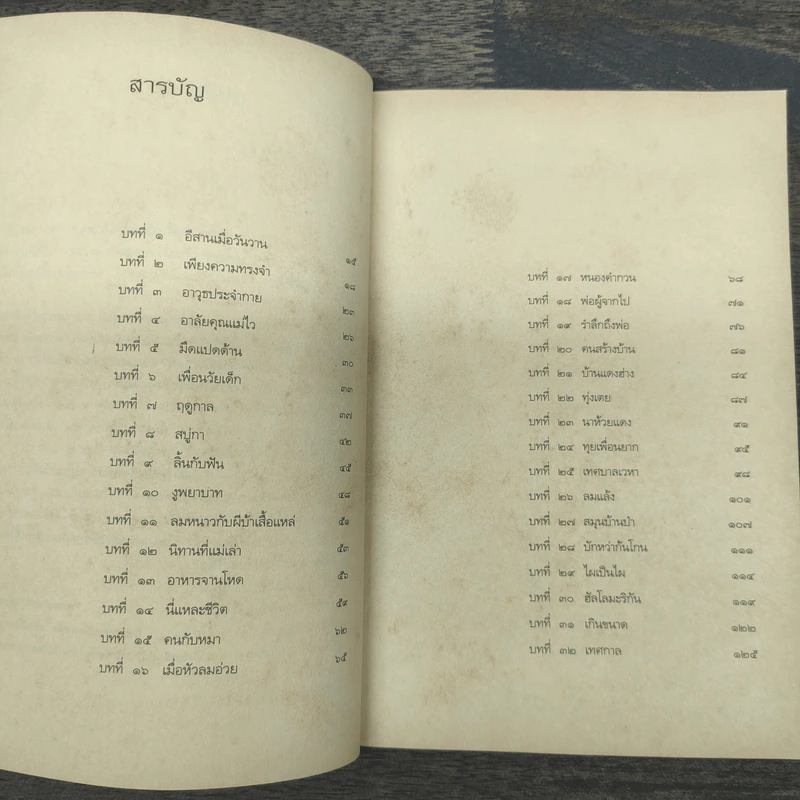 สารบัญ
บทที่ ๑ อีสานเมื่อวันวาน ๑๕
บทที่ ๒ เพียงความทรงจำ ๑๘
บทที่ ๓ อาวุธประจำกาย ๒๓
บทที่ ๔ อาลัยคุณแม่ไว ๒๖
บทที่ ๕ มืดแปดด้าน ๓๐
บทที่ ๖ เพื่อนวัยเด็ก ๓๓
บทที่ ๗ ฤดูกาล ๓๗
บทที่ ๘ สบู่กา ๔๒
บทที่ ๙ ลิ้นกับฟัน ๔๕
บทที่ ๑๐ งูพยาบาท ๔๘
บทที่ ๑๑ ลมหนาวกับผีบ้าเสื้อแหล่ ๕๑
บทที่ ๑๒ นิทานที่แม่เล่า ๕๓
บทที่ ๑๓ อาหารจานโหด ๕๖
บทที่ ๑๔ นี่แหละชีวิต ๕๙
บทที่ ๑๕ คนกับหมา ๖๒
บทที่ ๑๖ เมื่อหัวลมอ่วย ๖๕
บทที่ ๑๗ หนองคำกวน ๖๘
บทที่ ๑๘ พ่อผู้จากไป ๗๑
บทที่ ๑๙ รำลึกถึงพ่อ ๗๖
บทที่ ๒๐ คนสร้างบ้าน ๘๑
บทที่ ๒๑ บ้านแดงฮ่าง ๘๔
บทที่ ๒๒ ทุ่งเตย ๘๗
บทที่ ๒๓ นาห้วยแดง ๙๑
บทที่ ๒๔ ทุยเพื่อนยาก ๙๕
บทที่ ๒๕ เทศบาลเวหา ๙๘
บทที่ ๒๖ ลมแล้ง ๑๐๑
บทที่ ๒๗ สมุนบ้านป่า ๑๐๗
บทที่ ๒๘ บักหว่าก้นโกน ๑๑๑
บทที่ ๒๙ ไผเป็นไผ ๑๑๔
บทที่ ๓๐ ฮัลโลมะริกัน ๑๑๙
บทที่ ๓๑ เกินขนาด ๑๒๒
บทที่ ๓๒ เทศกาล ๑๒๕